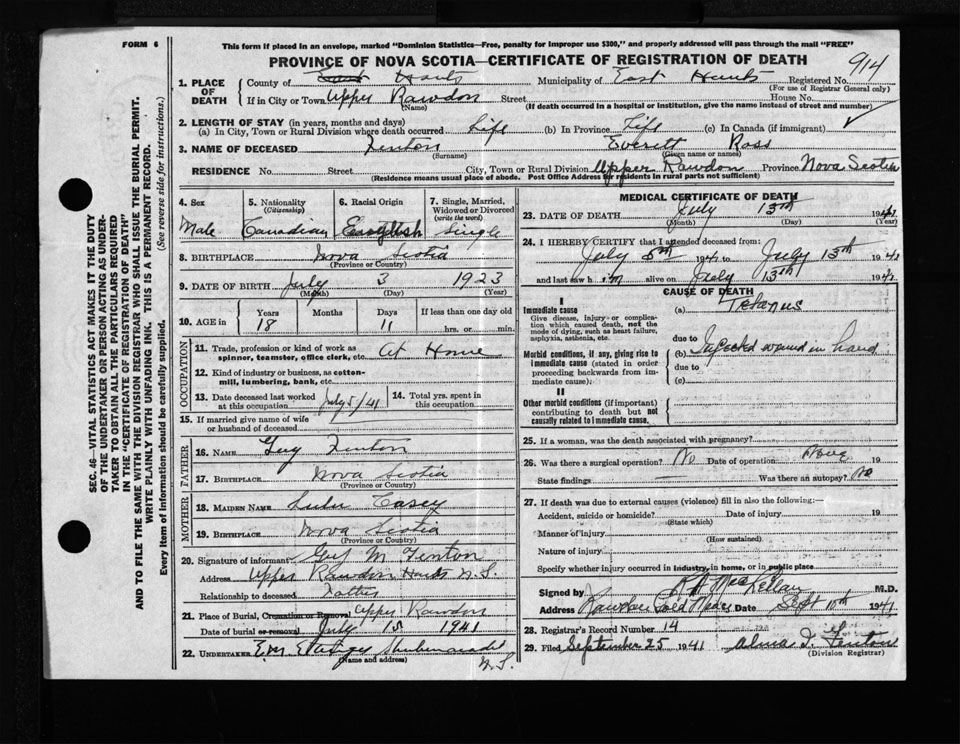 FORM 6
This form if placed in an envelope, marked "Dominion Statistics—Free, penalty for improper use $300," and properly addressed will pass through the mail "FREE"
PROVINCE OF NOVA SCOTIA—CERTIFICATE OF REGISTRATION OF DEATH
914
1. PLACE OF DEATH
County of Hants Municipality of East Hants Registered No.
(For use of Registrar General only)
If in City or Town Upper Rawdon Street House No.
(Name) (If death occurred in a hospital or institution, give the name instead of street and number)
2. LENGTH OF STAY (in years, months and days)
(a) In City, Town or Rural Division where death occurred Life (b) In Province Life (c) In Canada (if immigrant) ✓
3. NAME OF DECEASED Fenton Everett Ross
(Surname) (Given name or names)
RESIDENCE No. Street City, Town or Rural Division Upper Rawdon Province Nova Scotia
(Residence means usual place of abode. Post Office Address for residents in rural parts not sufficient)
4. Sex
Male
5. Nationality (Citizenship)
Canadian
6. Racial Origin
English
7. Single, Married, Widowed or Divorced (write the word)
Single
8. BIRTHPLACE Nova Scotia
(Province or Country)
9. DATE OF BIRTH July 3 1923
(Month) (Day) (Year)
10. AGE in Years Months Days If less than one day
18 11 hrs. or min.
OCCUPATION
11. Trade, profession or kind of work as spinner, teamster, office clerk, etc. At Home
12. Kind of industry or business, as cotton-mill, lumbering, bank, etc.
13. Date deceased last worked at this occupation July 5/41
14. Total yrs. spent in this occupation
15. If married give name of wife or husband of deceased
FATHER
16. NAME Guy Fenton
17. BIRTHPLACE Nova Scotia
(Province or Country)
MOTHER
18. MAIDEN NAME Lulu Casey
19. BIRTHPLACE Nova Scotia
(Province or Country)
20. Signature of informant Guy M Fenton
Address Upper Rawdon Hants N.S.
Relationship to deceased Father
21. Place of Burial, Cremation or Removal Upper Rawdon
Date of burial or removal July 15 1941
22. UNDERTAKER E.M. Shubenacadie
(Name and address) N.S.
MEDICAL CERTIFICATE OF DEATH
23. DATE OF DEATH July 13th 1941
(Month) (Day)
24. I HEREBY CERTIFY that I attended deceased from:
July 5th 1941 to July 13th 1941
and last saw him alive on July 13th 1941
CAUSE OF DEATH
I
Immediate cause
Give disease, injury or complication which caused death, not the mode of dying, such as heart failure, asphyxia, asthenia, etc.
(a) Tetanus
due to
Morbid conditions, if any, giving rise to immediate cause (stated in order proceeding backwards from immediate cause):
(b) Infected wound in hand
due to
(c)
II
Other morbid conditions (if important) contributing to death but not causally related to immediate cause.
25. If a woman, was the death associated with pregnancy?
26. Was there a surgical operation? No Date of operation None 19
State findings — Was there an autopsy? No
27. If death was due to external causes (violence) fill in also the following:—
Accident, suicide or homicide? Date of injury 19
(State which)
Manner of injury
(How sustained)
Nature of injury
Specify whether injury occurred in industry, in home, or in public place
Signed by R A MacLellan M.D.
Address Rawdon Gold Mines Date Sept 10th 1941
28. Registrar's Record Number 14
29. Filed September 25 1941 Alma I. Fenton
(Division Registrar)
SEC. 46—VITAL STATISTICS ACT MAKES IT THE DUTY
OF THE UNDERTAKER OR PERSON ACTING AS UNDER-
TAKER TO OBTAIN ALL THE PARTICULARS REQUIRED
IN THE "CERTIFICATE OF REGISTRATION OF DEATH"
AND TO FILE THE SAME WITH THE DIVISION REGISTRAR WHO SHALL ISSUE THE BURIAL PERMIT.
WRITE PLAINLY WITH UNFADING INK. THIS IS A PERMANENT RECORD.
Every item of information should be carefully supplied. (See reverse side for instructions.)